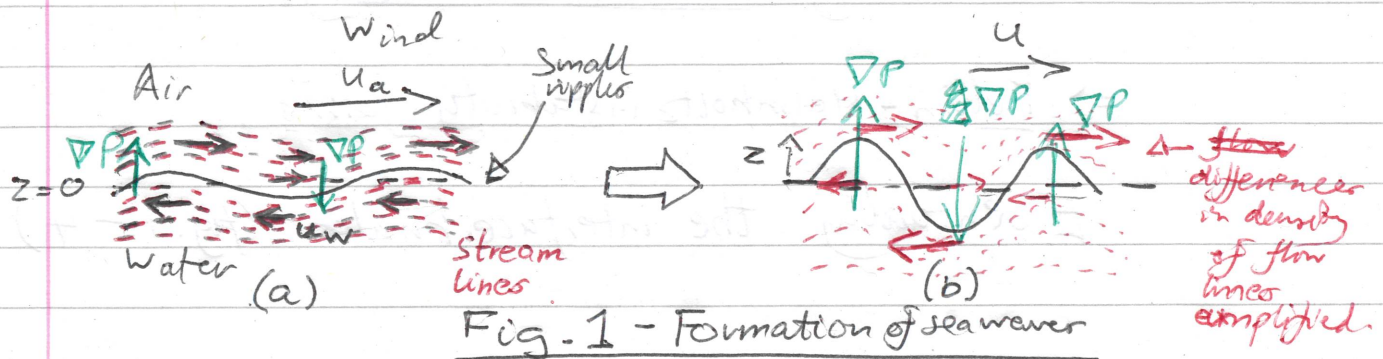 Wind
Air
u_a
Small
ripples
∇P
∇P
z=0
u_w
Water
stream
lines
(a)
u
∇P
∇P
∇P
z
Δ-
differences
in density
of flow
lines
(b)
Fig. 1 - Formation of sea waves